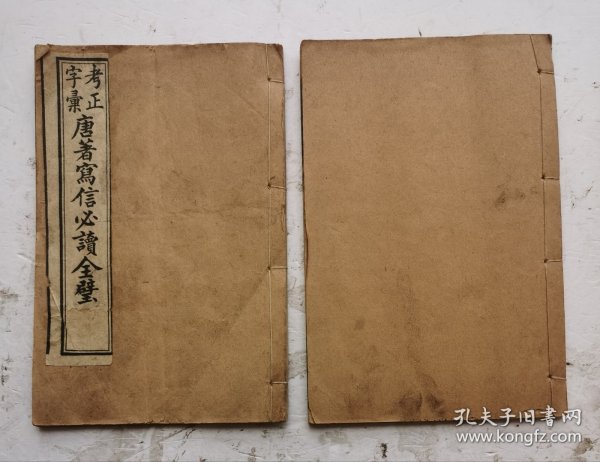 考正
字彙
唐著寫信必讀全璧
孔夫子旧书网
www.kongfz.com